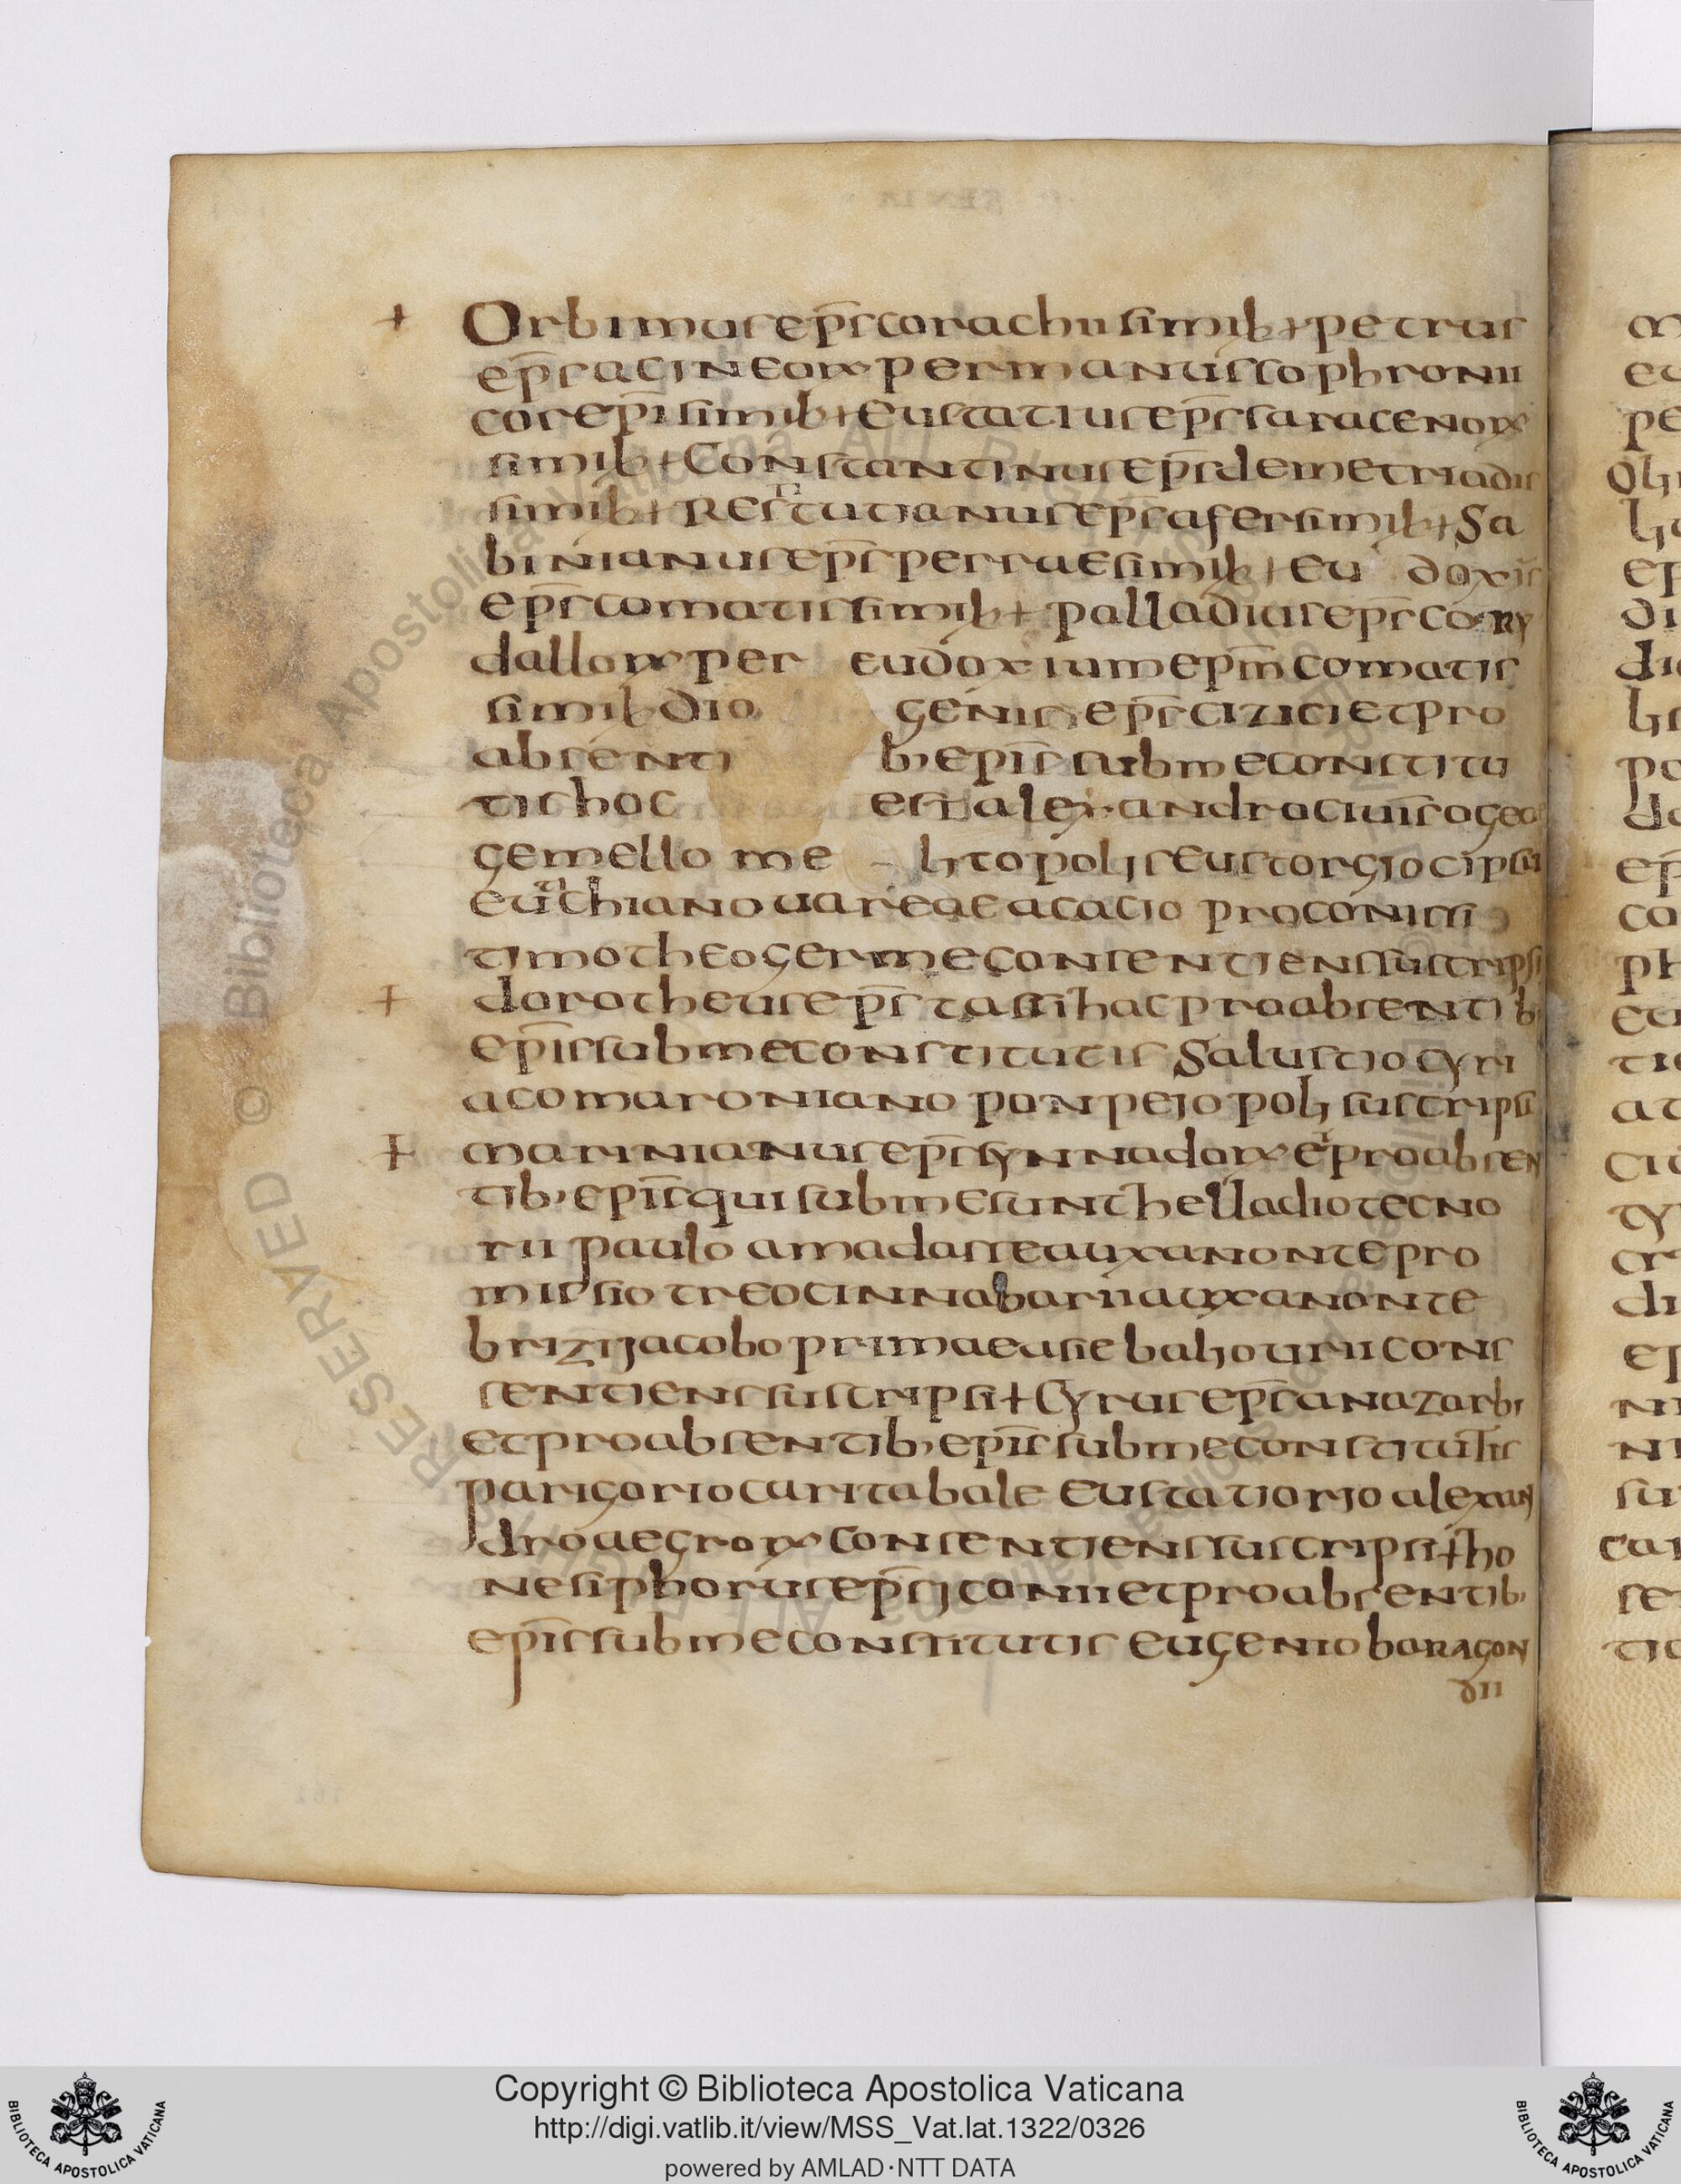 + Orbimus ep̅s corachii simiƚ + petrus
ep̅s acineoꝝ per manus sophronii
corep̅i simiƚ + eustatius ep̅s saracenoꝝ
simiƚ + Constantinus ep̅s demetriadis
simiƚ + Restitutianus ep̅s afer simiƚ + Sa
binianus ep̅s perrae simiƚ + eu doxis
ep̅s comatis simiƚ + palladius ep̅s cory
dalloꝝ per eudoxium ep̅m comatis
simiƚ dio genis ep̅s cizici et pro
absenti b, ep̅is sub me constitu
tis hoc est alexandro
gemello me litopolis eustorgio
euthchiano uareae acacio proconissi
timotheo germe consentiens suscripsi
+ dorotheus ep̅s tassi hac pro absentib,
ep̅is sub me constitutis Salustio cyri
aco maroniano ponpeiopoli suscripsi
+ marinianus ep̅s synnadoꝝ et pro absen
tib, ep̅is qui sub me sunt helladio tecno
rii paulo amadasse auxanonte pro
mipsio treo cinnabarii auxanonte
brizi jacobo primaeusie bahourii cons
sentiens suscripsi + Cyrus ep̅s anazarbi
et pro absentib, ep̅is sub me constitutis
parigorio caritabale eustatiorio alexan
dro aegroꝝ consentiens suscripsi + ho
nesiphorus ep̅s iconii et pro absentib,
ep̅is sub me constitutis eugenio baragon
dii
Copyright © Biblioteca Apostolica Vaticana
http://digi.vatlib.it/view/MSS_Vat.lat.1322/0326
powered by AMLAD·NTT DATA
BIBLIOTECA APOSTOLICA VATICANA
BIBLIOTECA APOSTOLICA VATICANA